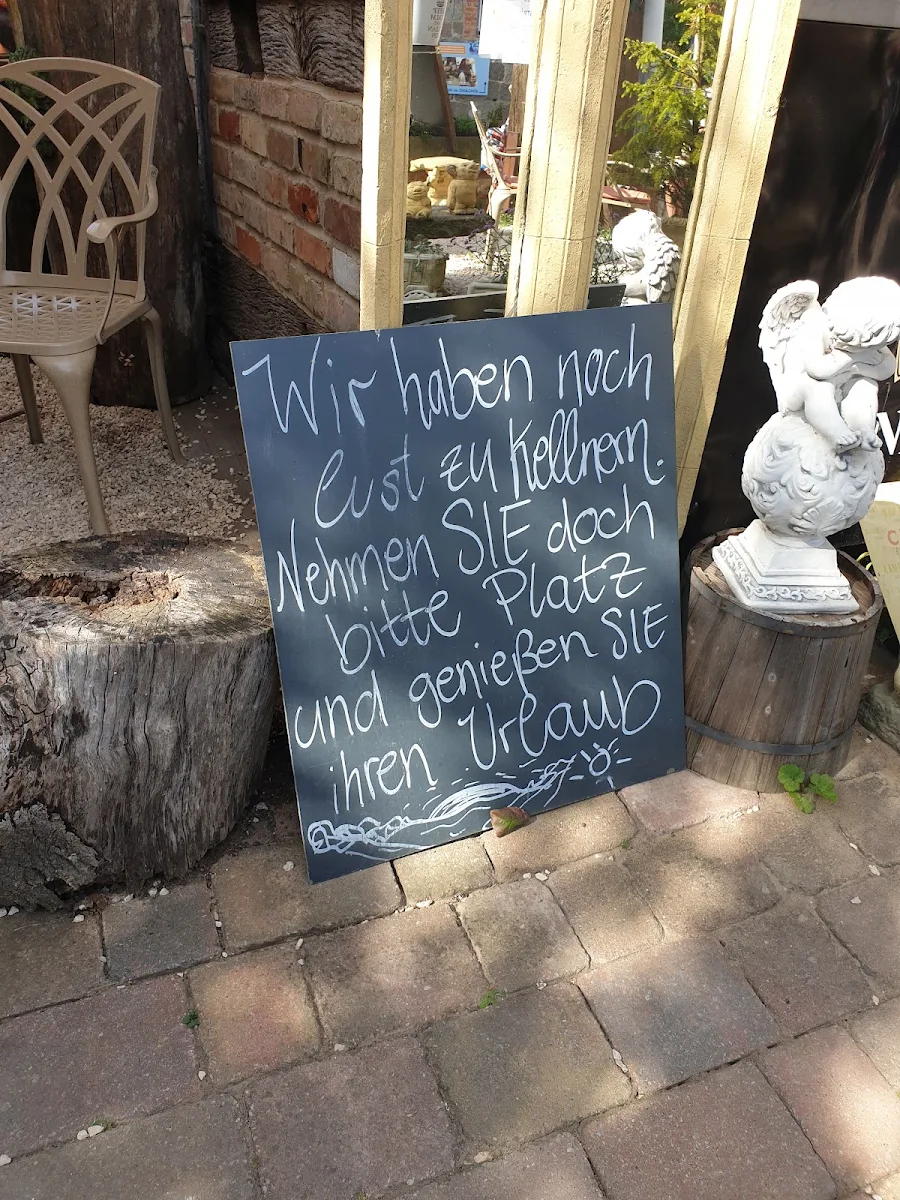 Wir haben noch
lust zu kellnern.
Nehmen SIE doch
bitte Platz
und genießen SIE
ihren Urlaub